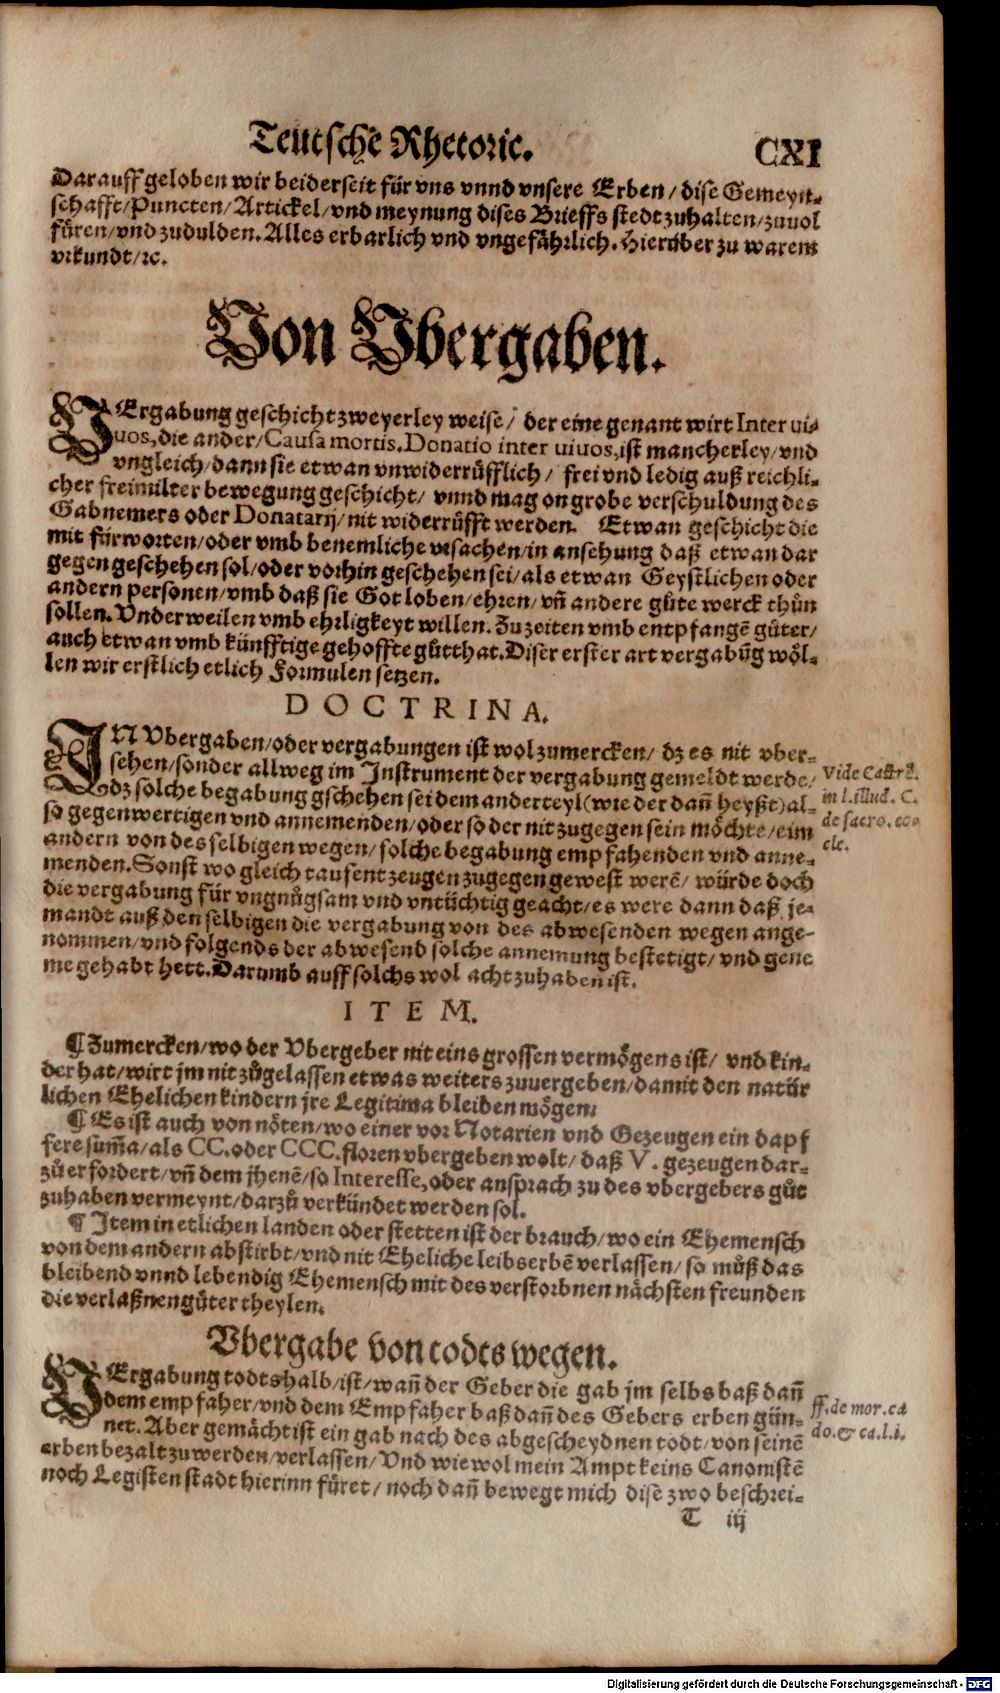 Teutsche Rhetoric. CXI
Darauff geloben wir beiderseit für vns vnnd vnsere Erben / dise Gemeyn-
schafft/Puncten/Artickel/vnd meynung dises Brieffs stedt zuhalten/zuuol
füren/vnd zudulden. Alles erbarlich vnd vngefährlich. Hierüber zu warem
vrkundt/ꝛc.
Von Vbergaben.
VErgabung geschicht zweyerley weise / der eine genant wirt Inter vi-
uos, die ander/Causa mortis. Donatio inter uiuos, ist mancherley/vnd
vngleich/dann sie etwan vnwiderrüfflich / frei vnd ledig auß reichli-
cher freimilter bewegung geschicht/ vnnd mag on grobe verschuldung des
Gabnemers oder Donatarij/nit widerrüfft werden. Etwan geschicht die
mit fürworten/oder vmb benemliche vrsachen/in ansehung daß etwan dar
gegen geschehen sol/oder vorhin geschehen sei/als etwan Geystlichen oder
andern personen/vmb daß sie Got loben/ehren/vñ andere gůte werck thůn
sollen. Vnderweilen vmb ehrligkeyt willen. Zu zeiten vmb entpfangē gůter/
auch etwan vmb künfftige gehoffte gůtthat. Diser erster art vergabūg wöl-
len wir erstlich etlich Formulen setzen.
DOCTRINA.
IN Vbergaben/oder vergabungen ist wol zumercken/ dz es nit vber-
sehen/sonder allweg im Instrument der vergabung gemeldt werde/
dz solche begabung gschehen sei dem anderteyl (wie der dañ heyßt) al-
so gegenwertigen vnd annemenden/oder so der nit zugegen sein möchte/eim
andern von desselbigen wegen/solche begabung empfahenden vnd anne-
menden. Sonst wo gleich tausent zeugen zugegen gewest werē/ würde doch
die vergabung für vngnůgsam vnd vntüchtig geacht/es were dann daß je-
mandt auß den selbigen die vergabung von des abwesenden wegen ange-
nommen/vnd folgends der abwesend solche annemung bestetigt/ vnd gene
me gehabt hett. Darumb auff solchs wol acht zuhaben ist.
Vide Castrē.
in l. illud. C.
de sacro. ecc
cle.
ITEM.
¶ Zumercken/wo der Vbergeber nit eins grossen vermögens ist/ vnd kin-
der hat/wirt jm nit zůgelassen etwas weiters zuuergeben/damit den natür
lichen Ehelichen kindern jre Legitima bleiben mögen.
¶ Es ist auch von nöten/wo einer vor Notarien vnd Gezeugen ein dapf
fere sum̃a/als CC. oder CCC. floren vbergeben wolt/ daß V. gezeugen dar-
zů erfordert/vñ dem jhenē/so Interesse, oder ansprach zu des vbergebers gůt
zuhaben vermeynt/darzů verkündet werden sol.
¶ Item in etlichen landen oder stetten ist der brauch/wo ein Ehemensch
von dem andern abstirbt/vnd nit Eheliche leibserbē verlassen/ so můß das
bleibend vnnd lebendig Ehemensch mit des verstorbnen nächsten freunden
die verlaßnen gůter theylen.
Vbergabe von todts wegen.
VErgabung todtshalb/ist/wañ der Geber die gab jm selbs baß dañ
dem empfaher/vnd dem Empfaher baß dañ des Gebers erben gün-
net. Aber gemächt ist ein gab nach des abgescheydnen todt/von seinē
erben bezalt zu werden/verlassen/ Vnd wiewol mein Ampt keins Canonistē
noch Legisten stadt hierinn füret/ noch dañ bewegt mich dise zwo beschrei-
ff. de mor. ca
do. & ca. l. i.
T iij
Digitalisierung gefördert durch die Deutsche Forschungsgemeinschaft - DFG